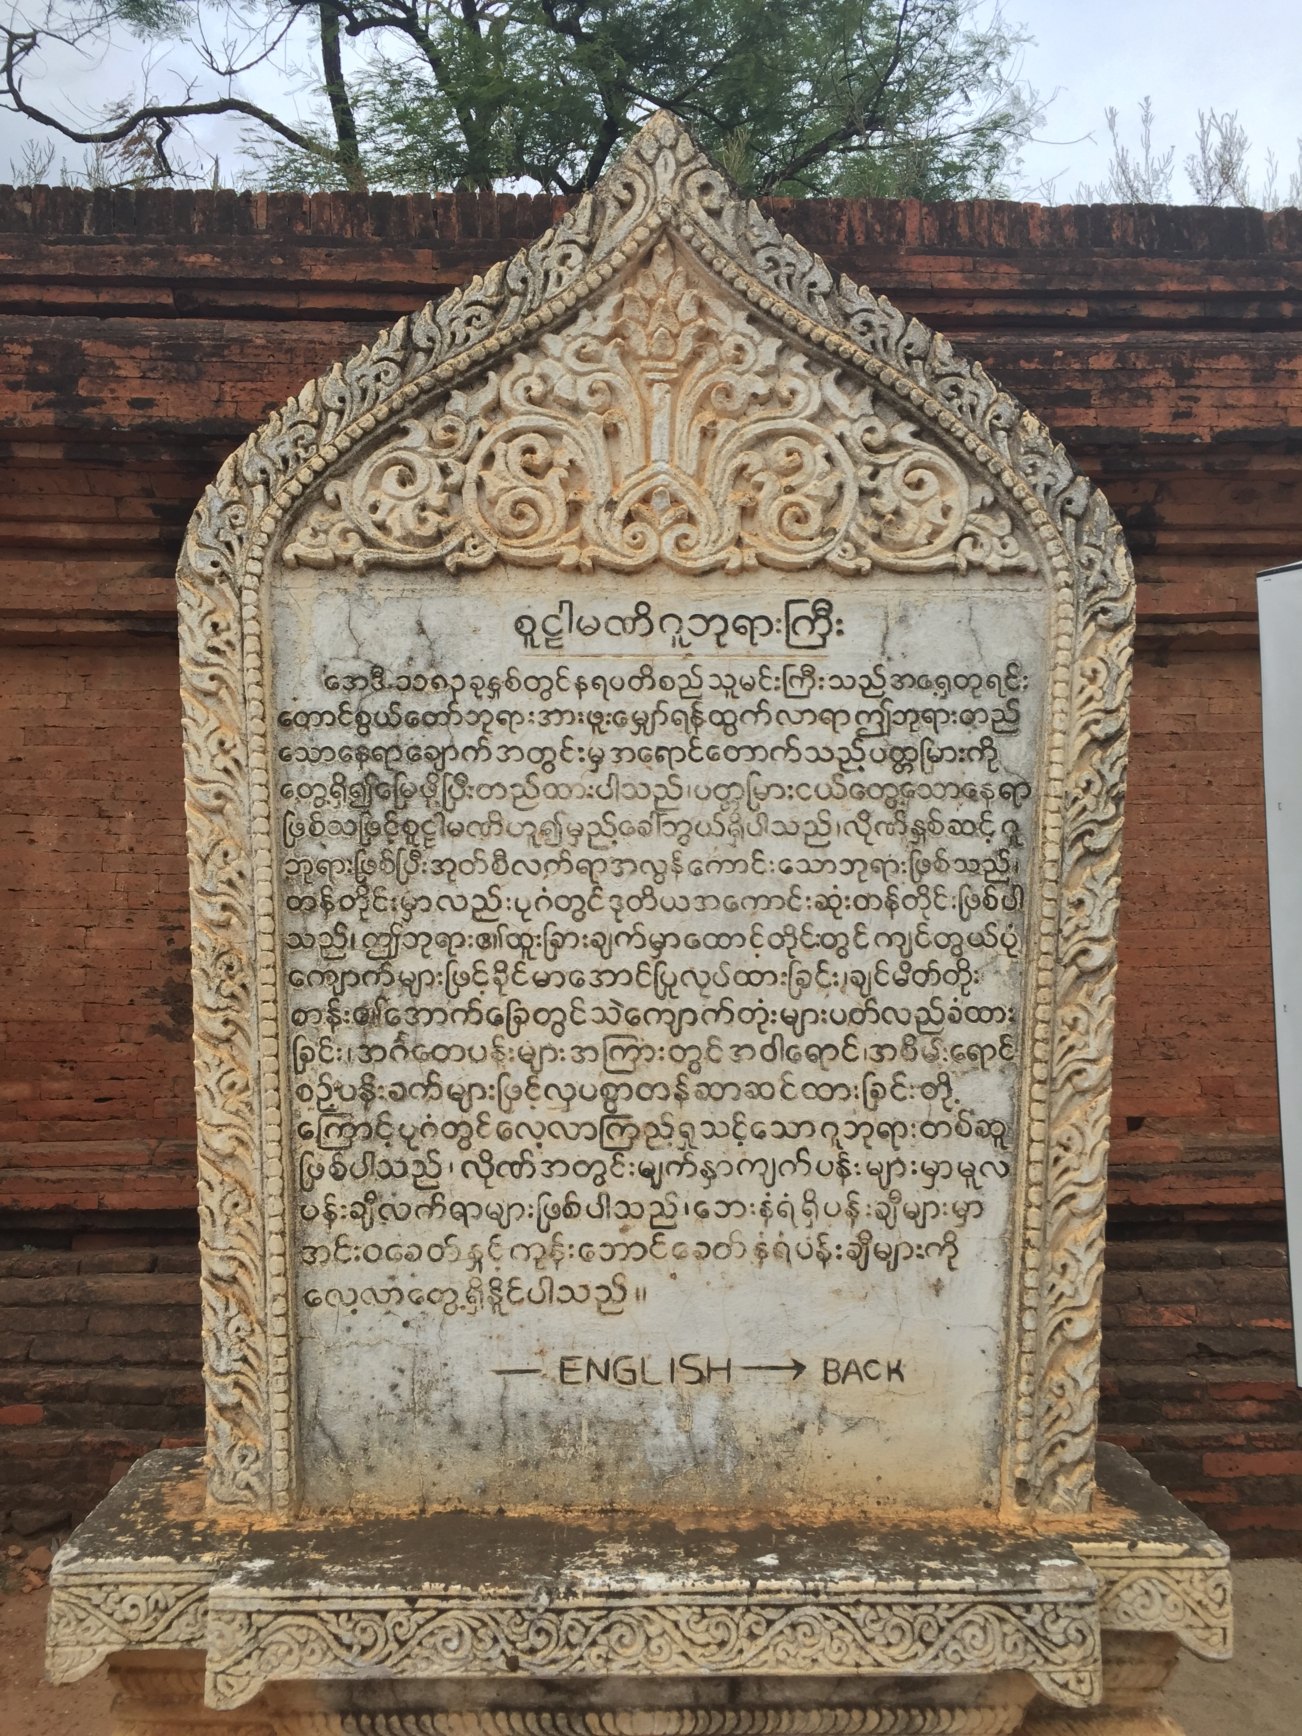 စူဠါမဏိဂူဘုရားကြီး
အေဒီ-၁၁၈၃ခုနှစ်တွင်နရပတိစည်သူမင်းကြီးသည်အရှေ့တုရင်း
တောင်စွယ်တော်ဘုရားအားဖူးမျှော်ရန်ထွက်လာရာဤဘုရားတည်
သောနေရာချောက်အတွင်းမှအရောင်တောက်သည့်ပတ္တမြားကို
တွေ့ရှိ၍မြေဖို့ပြီးတည်ထားပါသည်၊ပတ္တမြားငယ်တွေ့သောနေရာ
ဖြစ်သဖြင့်စူဠါမဏိဟူ၍မှည့်ခေါ်ဘွယ်ရှိပါသည်၊လိုဏ်နှစ်ဆင့်ဂူ
ဘုရားဖြစ်ပြီးအုတ်စီလက်ရာအလွန်ကောင်းသောဘုရားဖြစ်သည်၊
တန်တိုင်းမှာလည်းပုဂံတွင်ဒုတိယအကောင်းဆုံးတန်တိုင်းဖြစ်ပါ
သည်၊ဤဘုရား၏ထူးခြားချက်မှာထောင့်တိုင်းတွင်ကျင်တွယ်ပုံ
ကျောက်များဖြင့်ခိုင်မာအောင်ပြုလုပ်ထားခြင်း၊ချင်မိတ်တိုး
တန်း၏အောက်ခြေတွင်သဲကျောက်တုံးများပတ်လည်ခံထား
ခြင်း၊အင်္ဂတေပန်းများအကြားတွင်အဝါရောင်၊အစိမ်းရောင်
စဉ့်ပန်းခက်များဖြင့်လှပစွာတန်ဆာဆင်ထားခြင်းတို့
ကြောင့်ပုဂံတွင်လေ့လာကြည့်ရှုသင့်သောဂူဘုရားတစ်ဆူ
ဖြစ်ပါသည်၊လိုဏ်အတွင်းမျက်နှာကျက်ပန်းများမှာမူလ
ပန်းချီလက်ရာများဖြစ်ပါသည်၊ဘေးနံရံရှိပန်းချီများမှာ
အင်းဝခေတ်နှင့်ကုန်းဘောင်ခေတ်နံရံပန်းချီများကို
လေ့လာတွေ့ရှိနိုင်ပါသည်။
— ENGLISH → BACK